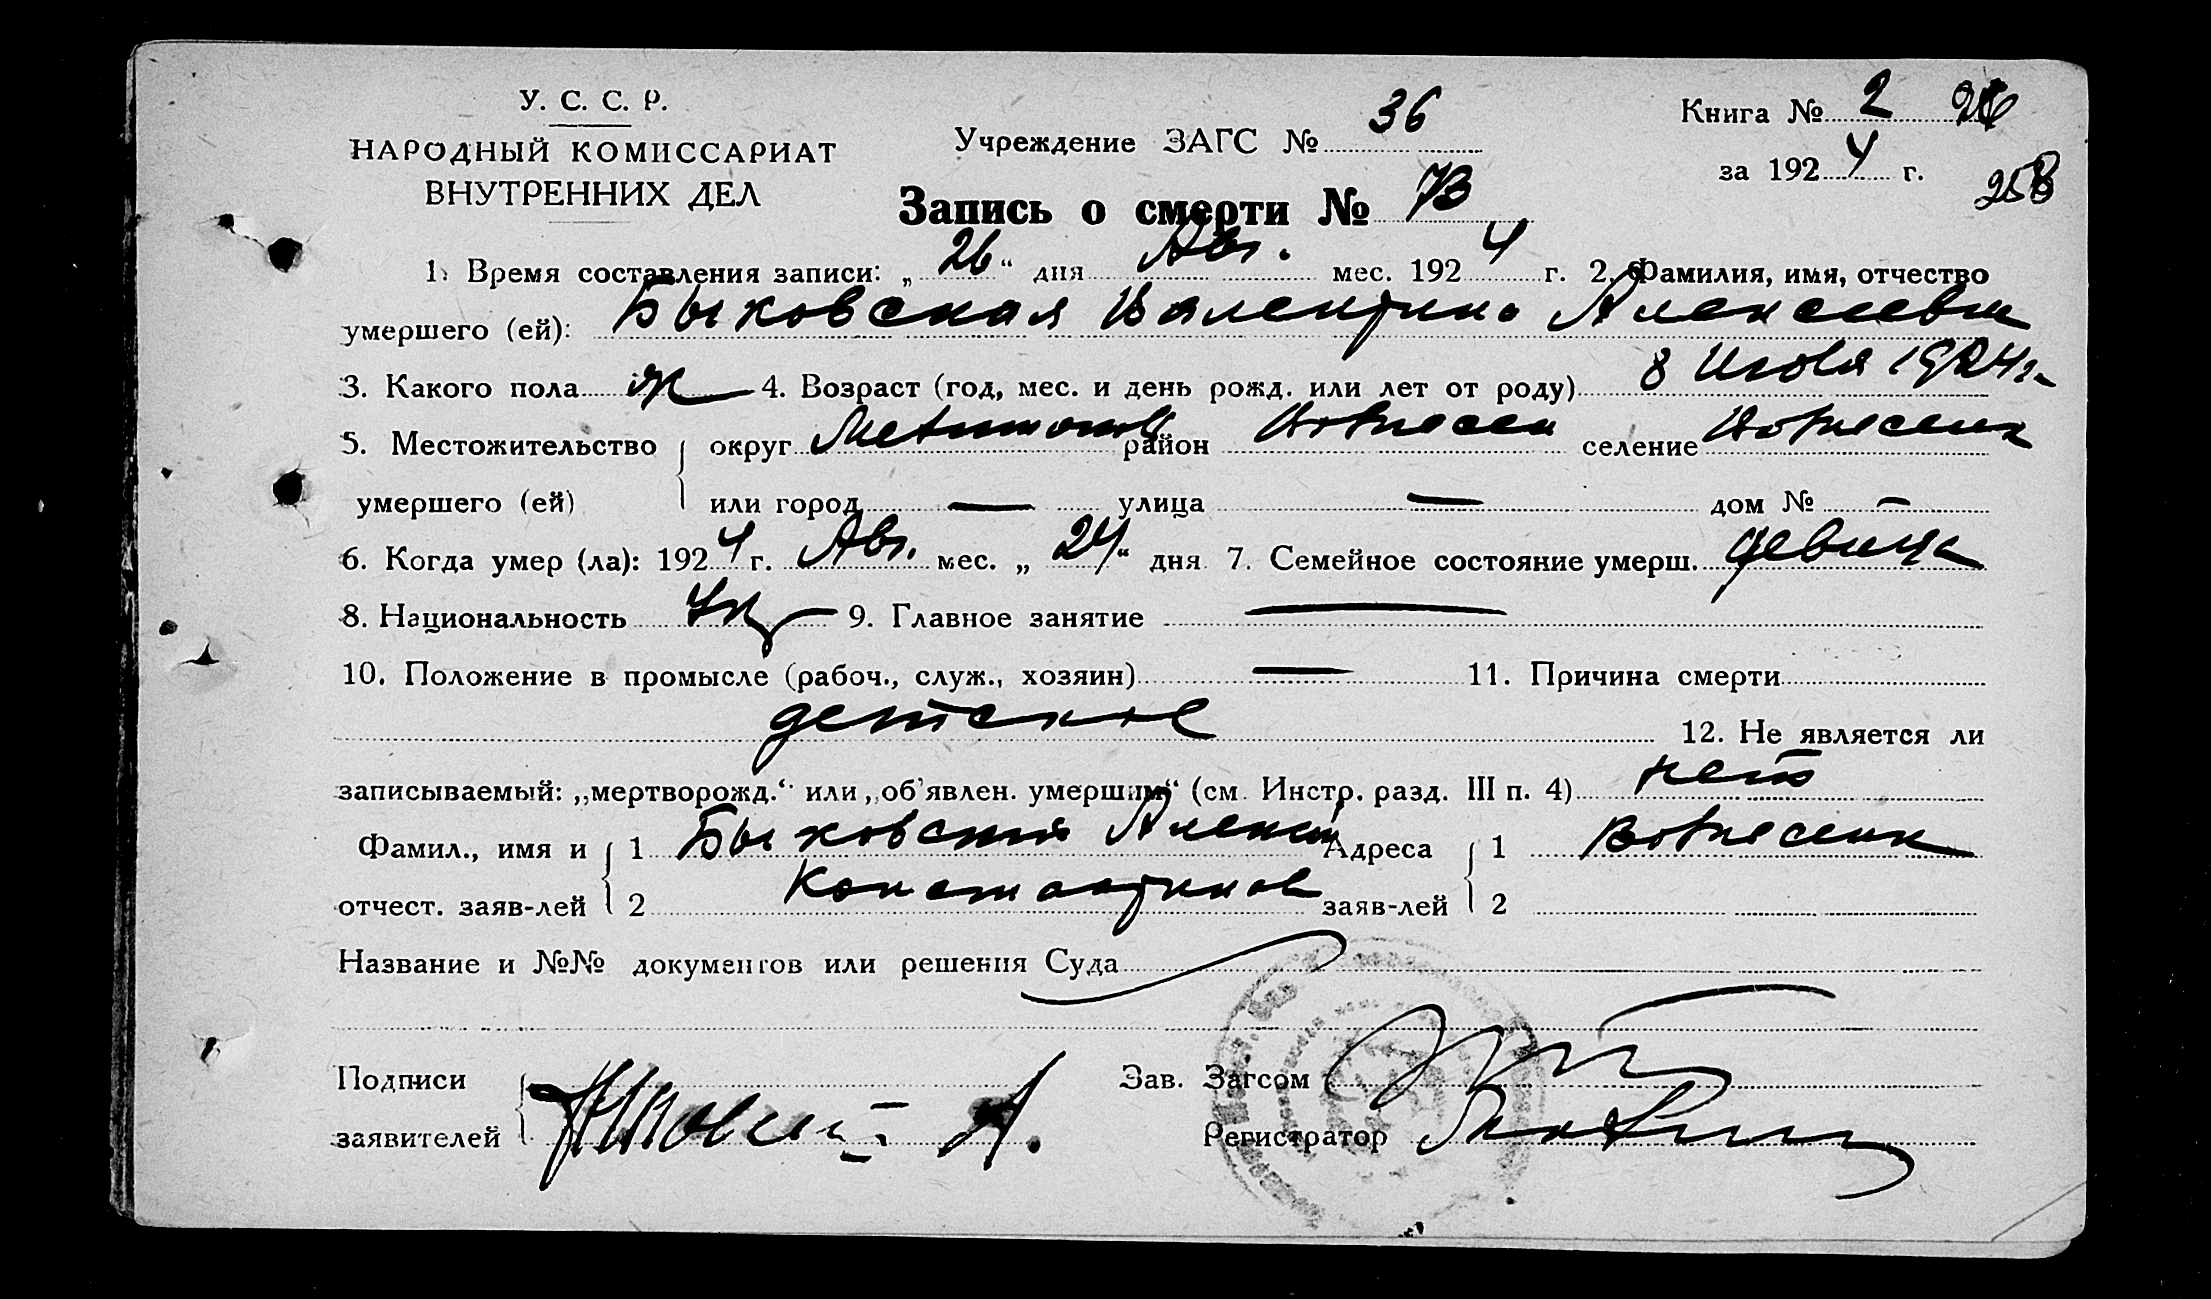 У. С. С. Р.
НАРОДНЫЙ КОМИССАРИАТ
ВНУТРЕННИХ ДЕЛ
Учреждение ЗАГС № 36
Книга № 2
за 1924 г.
Запись о смерти № 73
1. Время составления записи: „26“ дня Авг. мес. 1924 г. 2. Фамилия, имя, отчество
умершего (ей): Быковская Валентина Алексеевна
3. Какого пола ж 4. Возраст (год, мес. и день рожд. или лет от роду) 8 Июля 1924 г.
5. Местожительство округ район Вознесен селение Вознесенк
умершего (ей) или город — улица — дом № —
6. Когда умер (ла): 1924 г. Авг. мес. „24“ дня 7. Семейное состояние умерш. девица
8. Национальность укр 9. Главное занятие —
10. Положение в промысле (рабоч., служ., хозяин) — 11. Причина смерти
детское 12. Не является ли
записываемый: „мертворожд.“ или „об'явлен. умершим“ (см. Инстр. разд. III п. 4) нет
Фамил., имя и 1 Быковский Алексей Адреса 1 Вознесенк
отчест. заяв-лей 2 Константинов заяв-лей 2
Название и №№ документов или решения Суда
Подписи Зав. Загсом
заявителей Регистратор